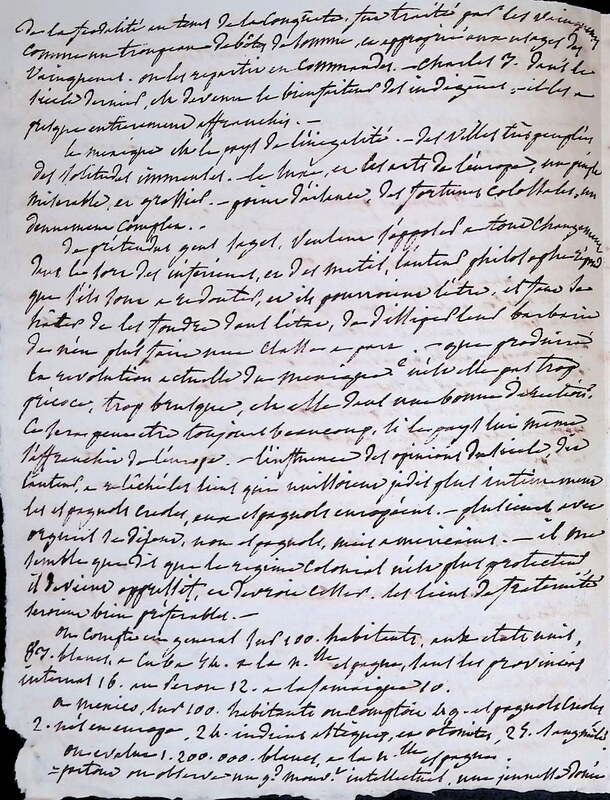 de la féodalité en tems de la Conquête, fut traité par les Vainqueurs
comme un troupeau de bêtes de somme, et approprié aux usages des
Vainqueurs. on les repartit en Commandes. - Charles 3. dans le
siècle dernier, est devenu le bienfaiteur des indigènes, - il les a
presque entierement affranchis. -
le mexique est le pays de l'inegalité. - des Villes très peuplées
des solitudes immenses. - le luxe, et les arts de l'europe, un peuple
miserable, et grossier. - point d'aisance, des fortunes Colossales, un
denuement Complet. -
de prétendus gens sages, veulent s'opposer a tout changement
dans le sort des inférieurs, et des metis, l'auteur philosophe répond
que s'ils sont a redouter, et ils pourroient l'être, il faut se
hâter de les fondre dans l'état, de dissiper leur barbarie
de n'en plus faire une Classe a part. - que produira
la revolution actuelle du mexique? n'est elle pas trop
précoce, trop brusque, est elle dans une bonne direction?
Ce sera peut etre toujours beaucoup, si le pays lui même
s'affranchit de l'europe. - l'influence des opinions du siècle, dit
l'auteur, a relâché les liens qui unissoient jadis plus intimement
les espagnols creoles, aux espagnols européens. - plusieurs avec
orgueil se disent, non espagnols, mais américains. - il me
semble que dès que le regime Colonial n'est plus protecteur
il devient oppressif, et devroit cesser. les liens de fraternité
seroient bien préférables. -
on compte en general sur 100. habitants, aux etats unis,
83. blancs, a Cuba 54. a la n.lle espagne, sans les provinces
internes 16. au Perou 12. a la Jamaique 10.
a mexico, sur 100. habitants on compte 49. espagnols Creoles
2. nés en europe, 24. indiens aztèques, et otomites, 25. sang mêlé
on evalue 1.200.000. blancs, a la n.lle espagne.
- partout on observe un g.d mouv.t intellectuel, une jeunesse douée